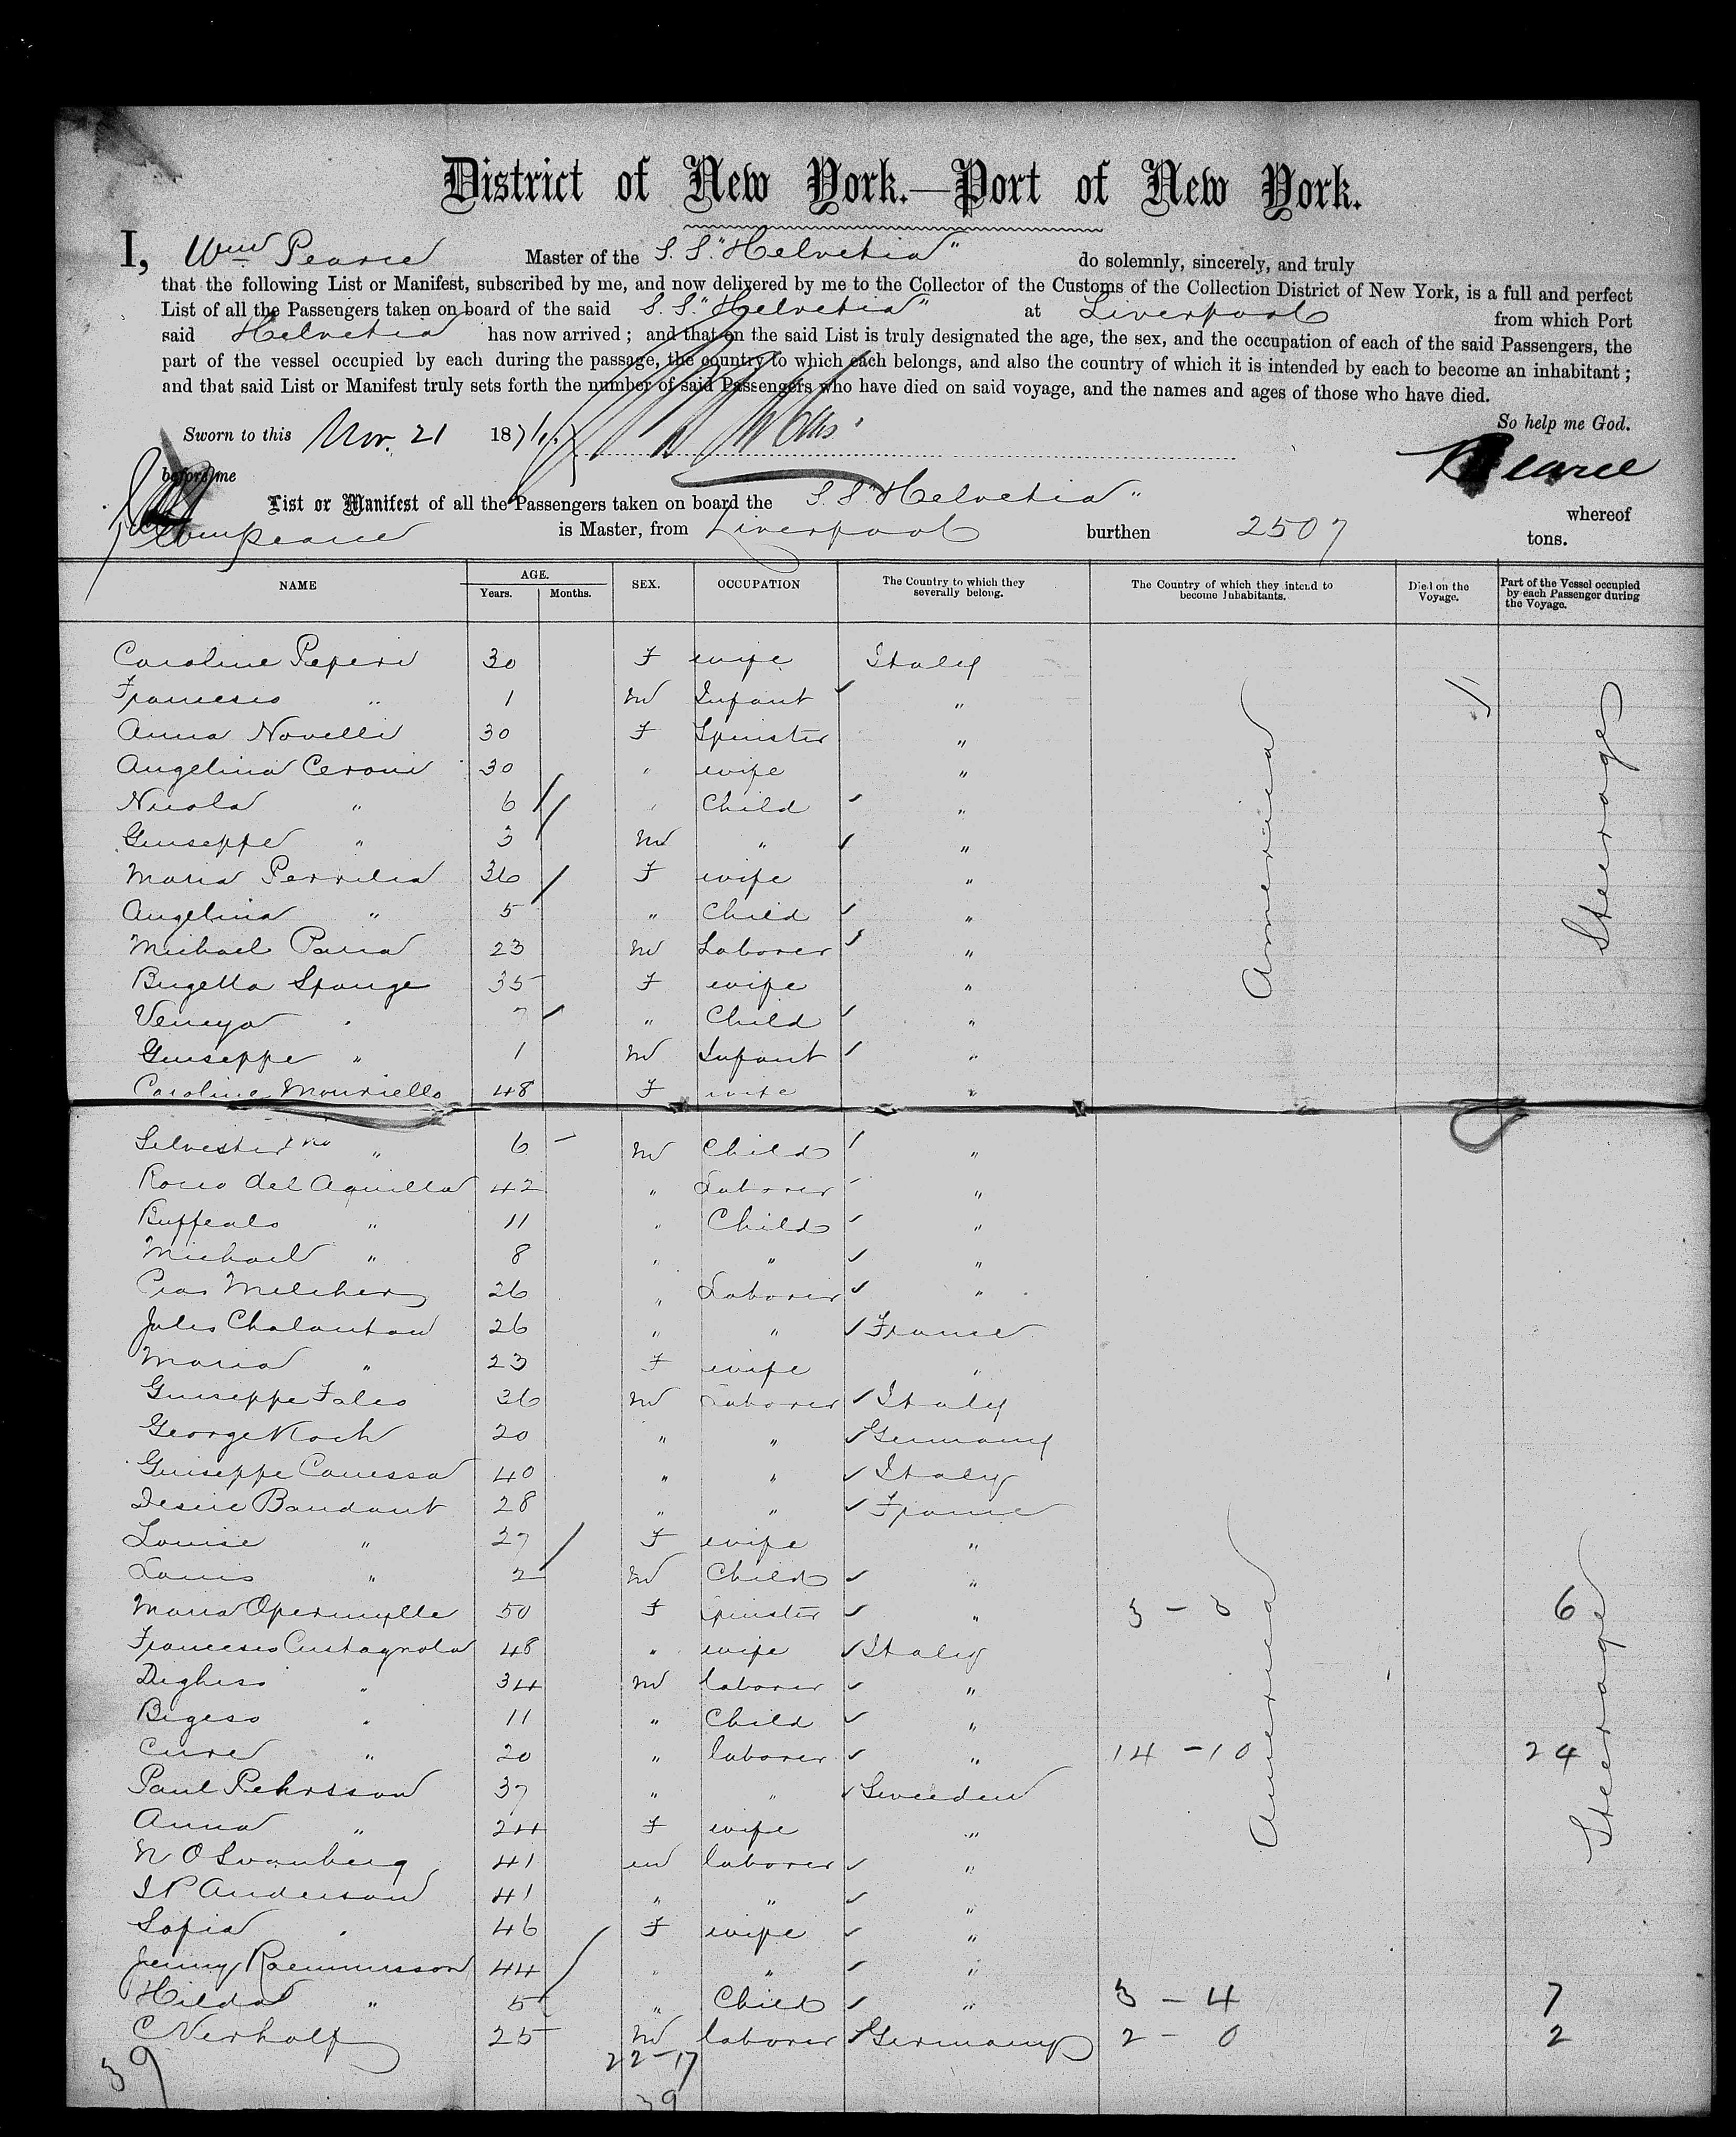 District of New York.—Port of New York.
I, Wm Pearce Master of the S. S. "Helvetia" do solemnly, sincerely, and truly
that the following List or Manifest, subscribed by me, and now delivered by me to the Collector of the Customs of the Collection District of New York, is a full and perfect
List of all the Passengers taken on board of the said S. S. "Helvetia" at Liverpool from which Port
said Helvetia has now arrived; and that on the said List is truly designated the age, the sex, and the occupation of each of the said Passengers, the
part of the vessel occupied by each during the passage, the country to which each belongs, and also the country of which it is intended by each to become an inhabitant;
and that said List or Manifest truly sets forth the number of said Passengers who have died on said voyage, and the names and ages of those who have died.
So help me God.
Sworn to this Nov. 21 187
before me
Pearce
List or Manifest of all the Passengers taken on board the S. S. "Helvetia"
whereof
Wm Pearce is Master, from Liverpool burthen 2507 tons.
NAME AGE. Years. Months. SEX. OCCUPATION The Country to which they severally belong. The Country of which they intend to become Inhabitants. Died on the Voyage. Part of the Vessel occupied by each Passenger during the Voyage.
Caroline Peperi 30 F wife Italy
Francesco " 1 M Infant "
Anna Novelli 30 F Spinster "
Angelina Ceroni 30 " wife "
Nicola " 6 " Child "
Guiseppe " 3 M " "
Maria Perrilia 36 F wife "
Angelina " 5 " Child "
Michael Parra 23 M Laborer "
Bugetta Spange 35 F wife "
Veneya " 7 " Child "
Guiseppe " 1 M Infant "
Caroline Mouriello 48 F wife "
America
Steerage
Silvester " 6 M Child "
Rocco del Aquilla 42 " Laborer "
Buffealo " 11 " Child "
Michael " 8 " " "
Melcher 26 " Laborer "
Jules Chalantou 26 " " France
Maria " 23 F wife "
Guiseppe Falco 36 M Laborer Italy
George Koch 20 " " Germany
Guiseppe Canessa 40 " " Italy
Desire Baudant 28 " " France
Louise " 27 F wife "
Louis " 2 M Child "
Maria Opermylle 50 F Spinster " 6
Francesco Castagnola 48 " wife Italy
Dighiso " 34 M laborer "
Bigeso " 11 " Child "
Cure " 20 " laborer " 14 - 10 24
Paul Pehrsson 37 " " Sweeden
Anna " 24 F wife "
N O Svanberg 41 M laborer "
I P Anderson 41 " " "
Sofia " 46 F wife "
Jenny Raemmusson 44 " " "
Hilda " 5 " Child " 3 - 4 7
C Verholf 25 M laborer Germany 2 - 0 2
America
Steerage
39 22-17
39